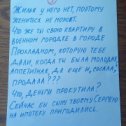 Жилья у него нет, поэтому
жениться не может.
Что же ты свою квартиру в
военном городке в городе
Прохладном, которую тебе
дали, когда ты была молодая,
аппетитная, да ещё и, сосала,
продала???
Что, деньги прокутила?
Сейчас бы сыну твоему Сергею
на ипотеку пригодились.